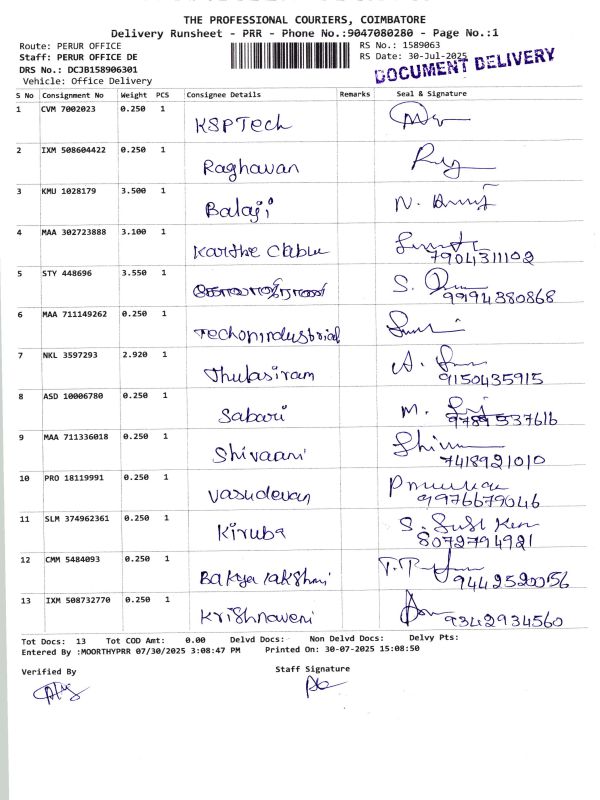 THE PROFESSIONAL COURIERS, COIMBATORE
Delivery Runsheet - PRR - Phone No.:9047080280 - Page No.:1
Route: PERUR OFFICE
RS No.: 1589063
Staff: PERUR OFFICE DE
RS Date: 30-Jul-2025
DRS No.: DCJB158906301
DOCUMENT DELIVERY
Vehicle: Office Delivery
S No Consignment No Weight PCS Consignee Details Remarks Seal & Signature
1 CVM 7002023 0.250 1 KSPTech
2 IXM 508604422 0.250 1 Raghavan
3 KMU 1028179 3.500 1 Balaji
4 MAA 302723888 3.100 1 Karthe Cable 7904311102
5 STY 448696 3.550 1 S. 9994380868
6 MAA 711149262 0.250 1 Techonindustrial
7 NKL 3597293 2.920 1 Thulasiram 9150435915
8 ASD 10006780 0.250 1 Sabari M. 9789537616
9 MAA 711336018 0.250 1 Shivaani 7418921010
10 PRO 18119991 0.250 1 Vasudevan 9976679046
11 SLM 374962361 0.250 1 Kiruba 8072794921
12 CMM 5484093 0.250 1 Bakya lakshmi 9442520056
13 IXM 508732770 0.250 1 Krishnaveni 9342934560
Tot Docs: 13 Tot COD Amt: 0.00 Delvd Docs: Non Delvd Docs: Delvy Pts:
Entered By :MOORTHYPRR 07/30/2025 3:08:47 PM Printed On: 30-07-2025 15:08:50
Verified By
Staff Signature